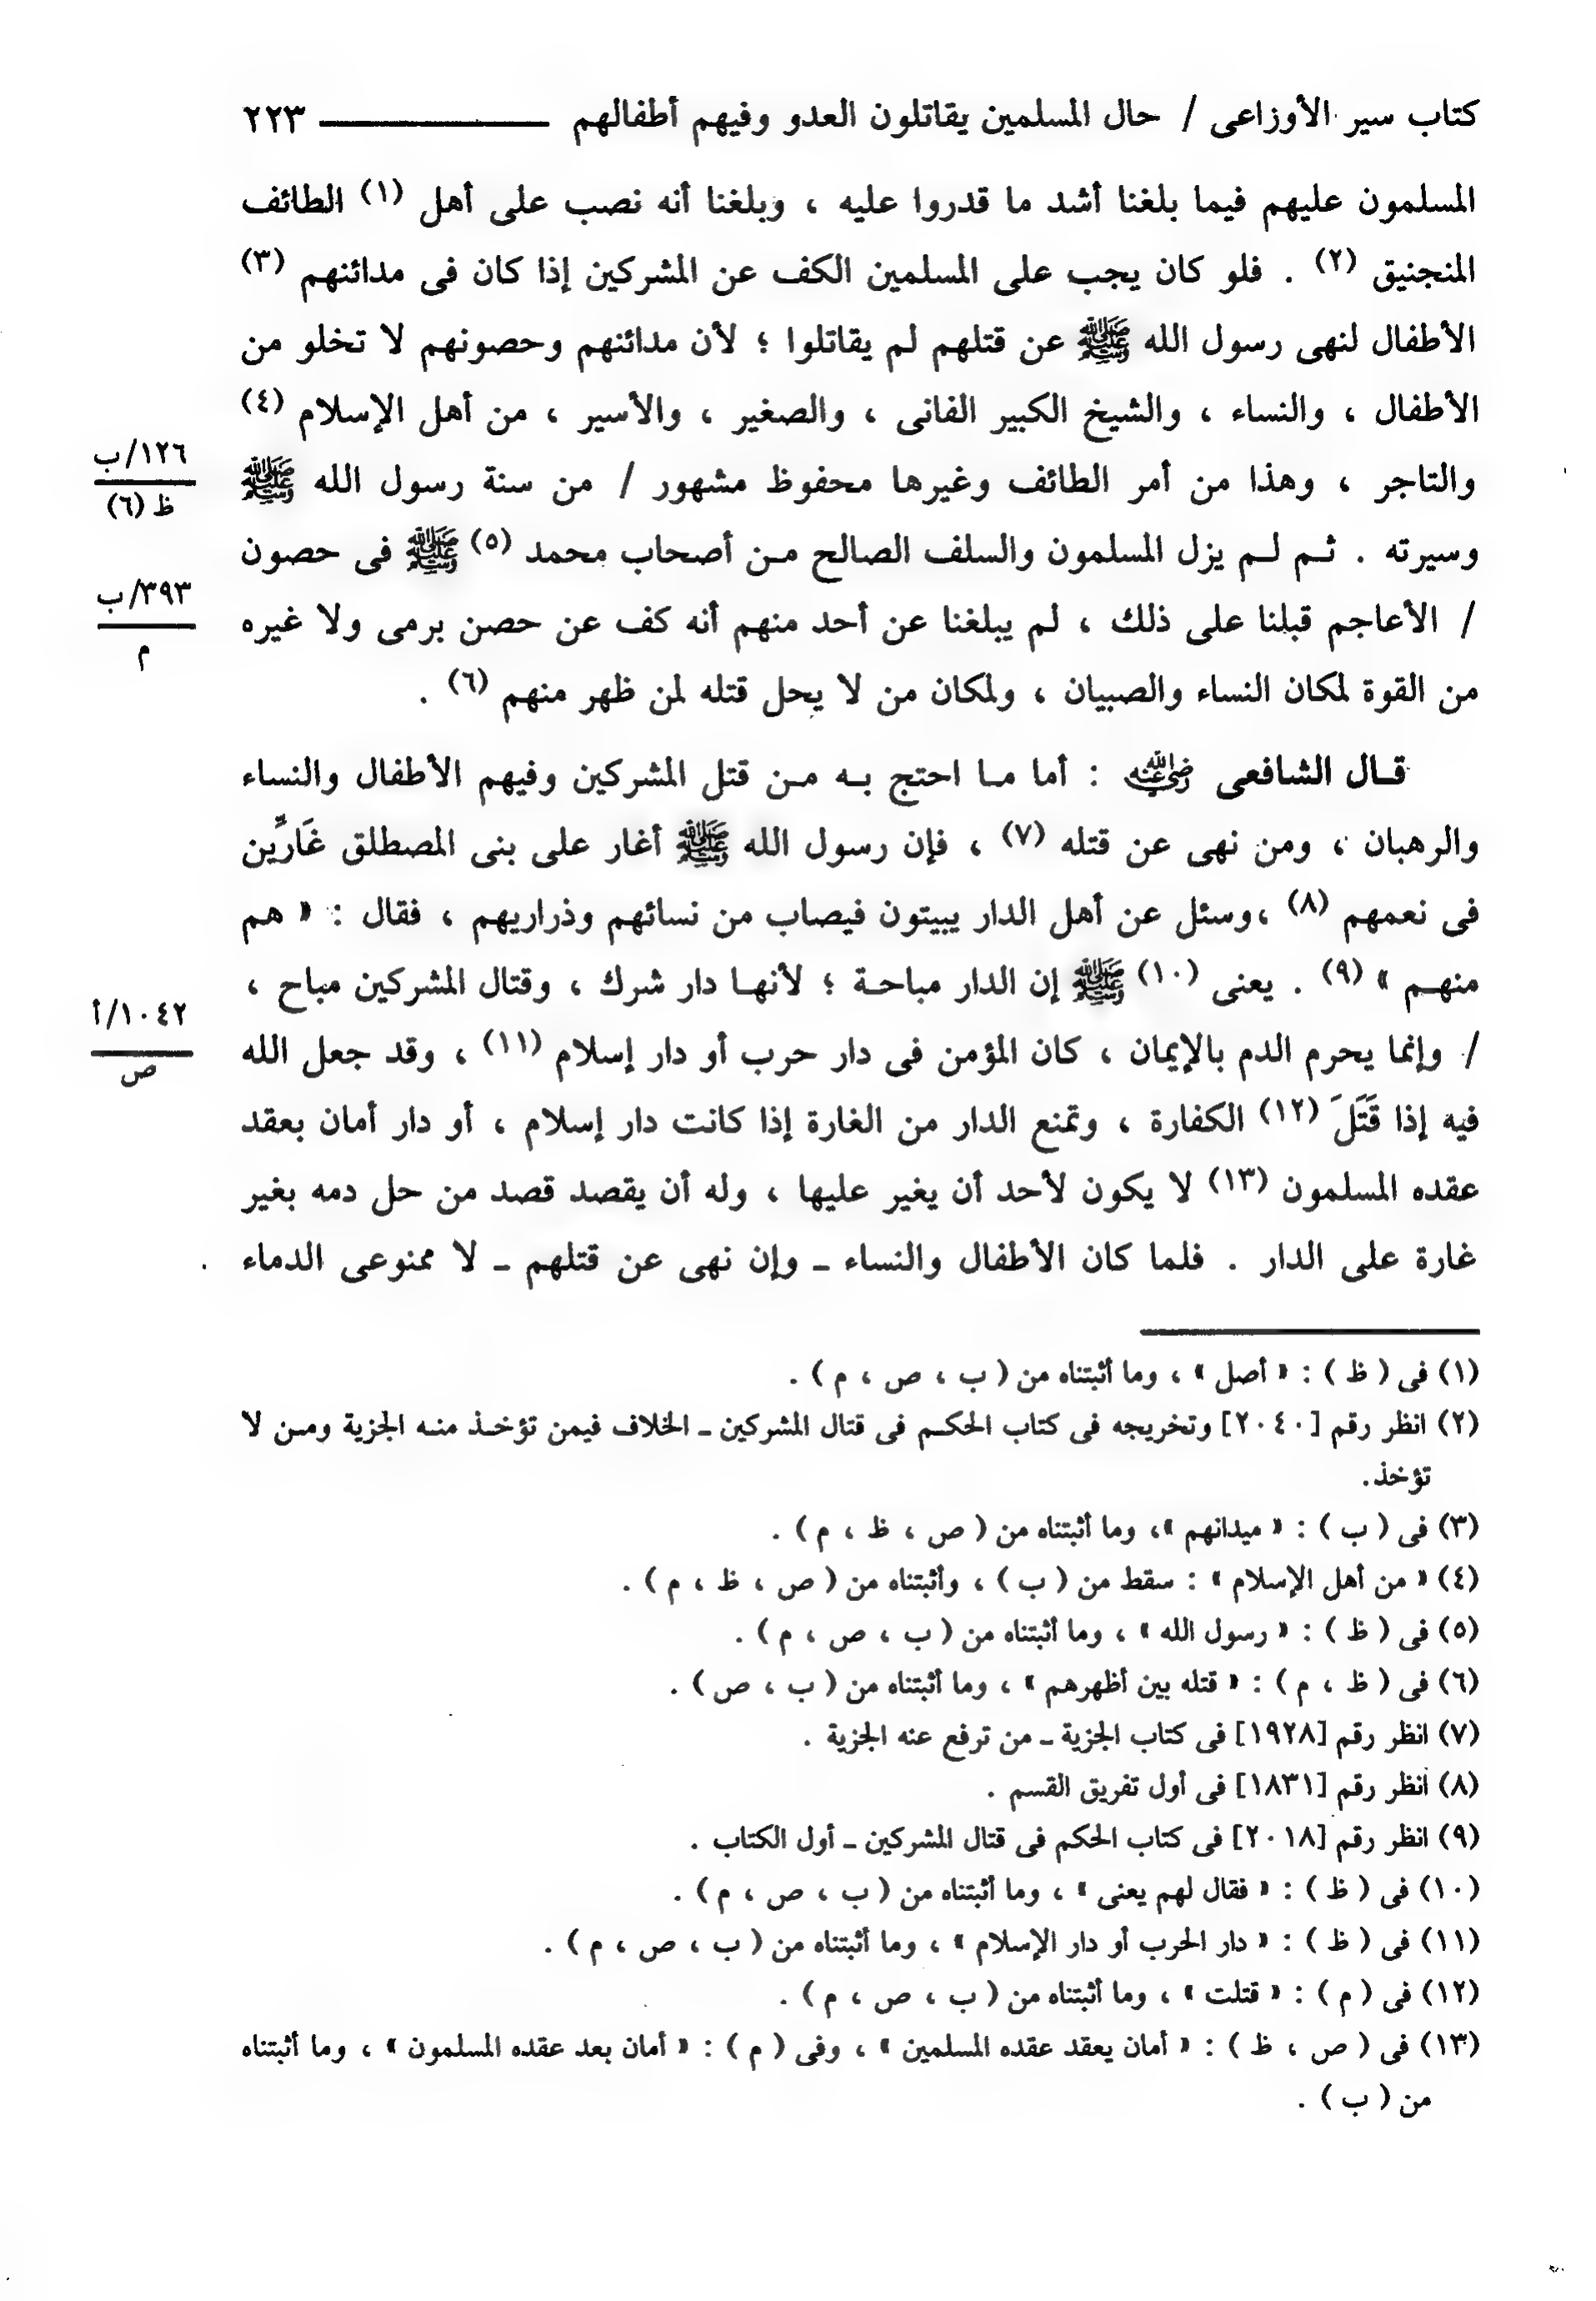 كتاب سير الأوزاعى / حال المسلمين يقاتلون العدو وفيهم أطفالهم ٢٢٣
المسلمون عليهم فيما بلغنا أشد ما قدروا عليه ، وبلغنا أنه نصب على أهل (١) الطائف
المنجنيق (٢) . فلو كان يجب على المسلمين الكف عن المشركين إذا كان فى مدائنهم (٣)
الأطفال لنهى رسول الله ﷺ عن قتلهم لم يقاتلوا ؛ لأن مدائنهم وحصونهم لا تخلو من
الأطفال ، والنساء ، والشيخ الكبير الفانى ، والصغير ، والأسير ، من أهل الإسلام (٤)
والتاجر ، وهذا من أمر الطائف وغيرها محفوظ مشهور / من سنة رسول الله ﷺ
١٢٦/ب
ظ (٦)
وسيرته . ثم لم يزل المسلمون والسلف الصالح من أصحاب محمد (٥) ﷺ فى حصون
/ الأعاجم قبلنا على ذلك ، لم يبلغنا عن أحد منهم أنه كف عن حصن برمى ولا غيره
٣٩٣/ب
م
من القوة لمكان النساء والصبيان ، ولمكان من لا يحل قتله لمن ظهر منهم (٦) .
قال الشافعى رضي الله عنه : أما ما احتج به من قتل المشركين وفيهم الأطفال والنساء
والرهبان ، ومن نهى عن قتله (٧) ، فإن رسول الله ﷺ أغار على بنى المصطلق غَارِّين
فى نعمهم (٨) ،وسئل عن أهل الدار يبيتون فيصاب من نسائهم وذراريهم ، فقال : « هم
منهم » (٩) . يعنى (١٠) ﷺ إن الدار مباحة ؛ لأنها دار شرك ، وقتال المشركين مباح ،
/ وإنما يحرم الدم بالإيمان ، كان المؤمن فى دار حرب أو دار إسلام (١١) ، وقد جعل الله
١٠٤٢/أ
ص
فيه إذا قَتَلَ (١٢) الكفارة ، وتمنع الدار من الغارة إذا كانت دار إسلام ، أو دار أمان بعقد
عقده المسلمون (١٣) لا يكون لأحد أن يغير عليها ، وله أن يقصد قصد من حل دمه بغير
غارة على الدار . فلما كان الأطفال والنساء ـ وإن نهى عن قتلهم ـ لا ممنوعى الدماء
(١) فى ( ظ ) : « أصل » ، وما أثبتناه من ( ب ، ص ، م ) .
(٢) انظر رقم [٢٠٤٠] وتخريجه فى كتاب الحكم فى قتال المشركين ـ الخلاف فيمن تؤخذ منه الجزية ومن لا
تؤخذ.
(٣) فى ( ب ) : « ميدانهم »، وما أثبتناه من ( ص ، ظ ، م ) .
(٤) « من أهل الإسلام » : سقط من ( ب ) ، وأثبتناه من ( ص ، ظ ، م ) .
(٥) فى ( ظ ) : « رسول الله » ، وما أثبتناه من ( ب ، ص ، م ) .
(٦) فى ( ظ ، م ) : « قتله بين أظهرهم » ، وما أثبتناه من ( ب ، ص ) .
(٧) انظر رقم [١٩٢٨] فى كتاب الجزية ـ من ترفع عنه الجزية .
(٨) انظر رقم [١٨٣١] فى أول تفريق القسم .
(٩) انظر رقم [٢٠١٨] فى كتاب الحكم فى قتال المشركين ـ أول الكتاب .
(١٠) فى ( ظ ) : « فقال لهم يعنى » ، وما أثبتناه من ( ب ، ص ، م ) .
(١١) فى ( ظ ) : « دار الحرب أو دار الإسلام » ، وما أثبتناه من ( ب ، ص ، م ) .
(١٢) فى ( م ) : « قتلت » ، وما أثبتناه من ( ب ، ص ، م ) .
(١٣) فى ( ص ، ظ ) : « أمان يعقد عقده المسلمين » ، وفى ( م ) : « أمان بعد عقده المسلمون » ، وما أثبتناه
من ( ب ) .